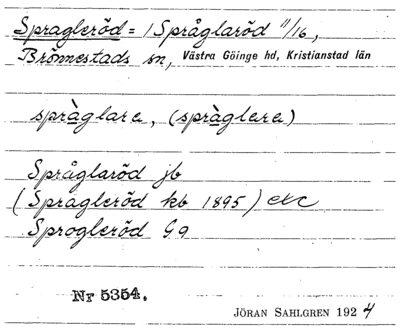 Spragleröd = 1 Språglaröd 11/16,
Brönnestads sn, Västra Göinge hd, Kristianstad län
spràglara, (spràglera)
Språglaröd jb
(Spragleröd kb 1895) etc
Sprogleröd Gg
Nr 5354.
JÖRAN SAHLGREN 1924